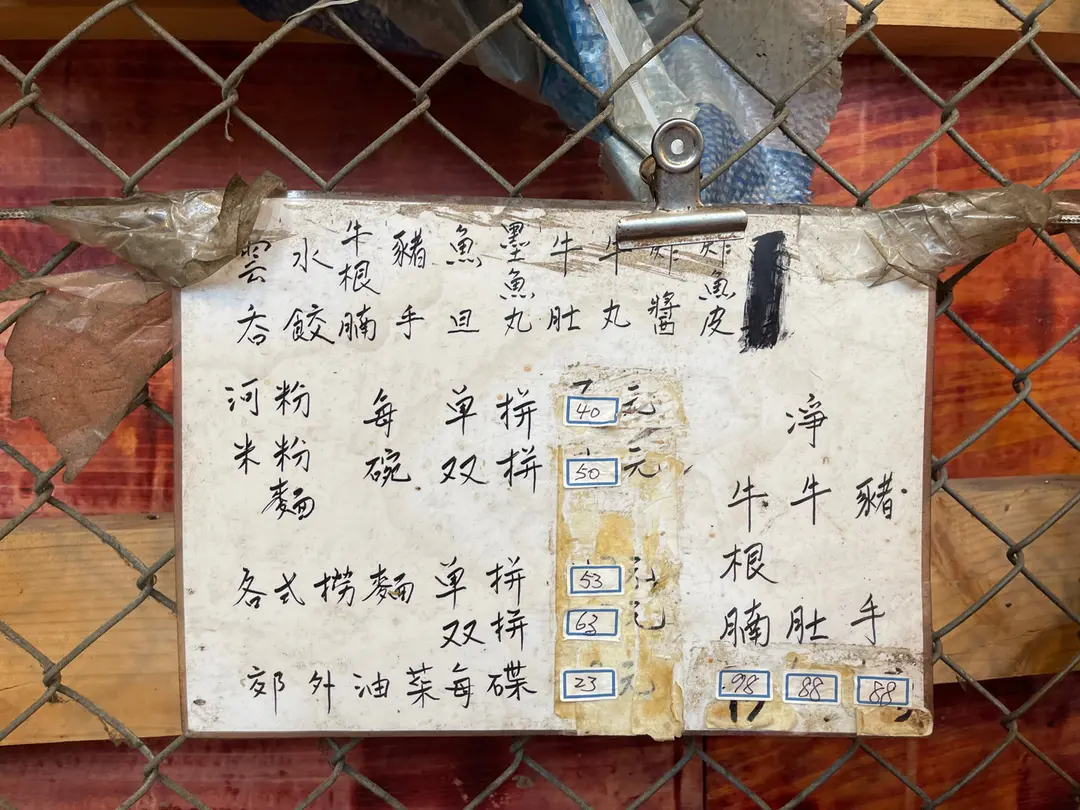 雲吞
水餃
牛根腩
豬手
魚旦
墨魚丸
牛肚
牛丸
炸醬
炸魚皮
河粉
米粉
麵
每碗
单拼 40 元
双拼 50 元
各式撈麵 单拼 53 元
双拼 63 元
郊外油菜每碟 23 元
淨
牛根腩 98
牛肚 88
豬手 88